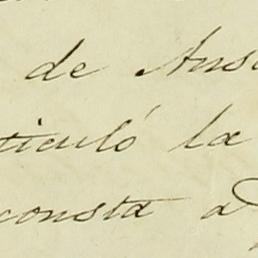 de Ansa
ticuló la
consta a